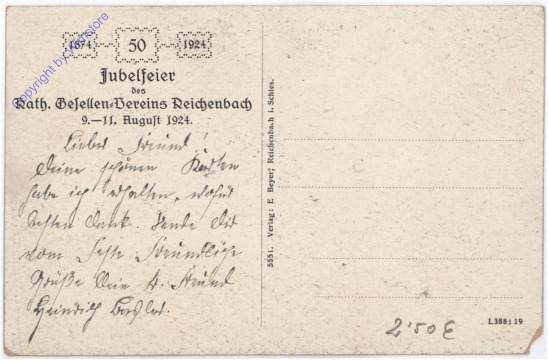 1874 50 1924
Jubelfeier
des
Kath. Gesellen-Vereins Reichenbach
9.—11. August 1924.
Lieber Freund!
Deine schönen Karten
habe ich erhalten, wofür
besten Dank. Sende Dir
vom Feste Freundliche
Grüße Dein Freund
Heinrich
5551. Verlag: E Beyer, Reichenbach i. Schles.
L388119
2'50 €
Copyright by